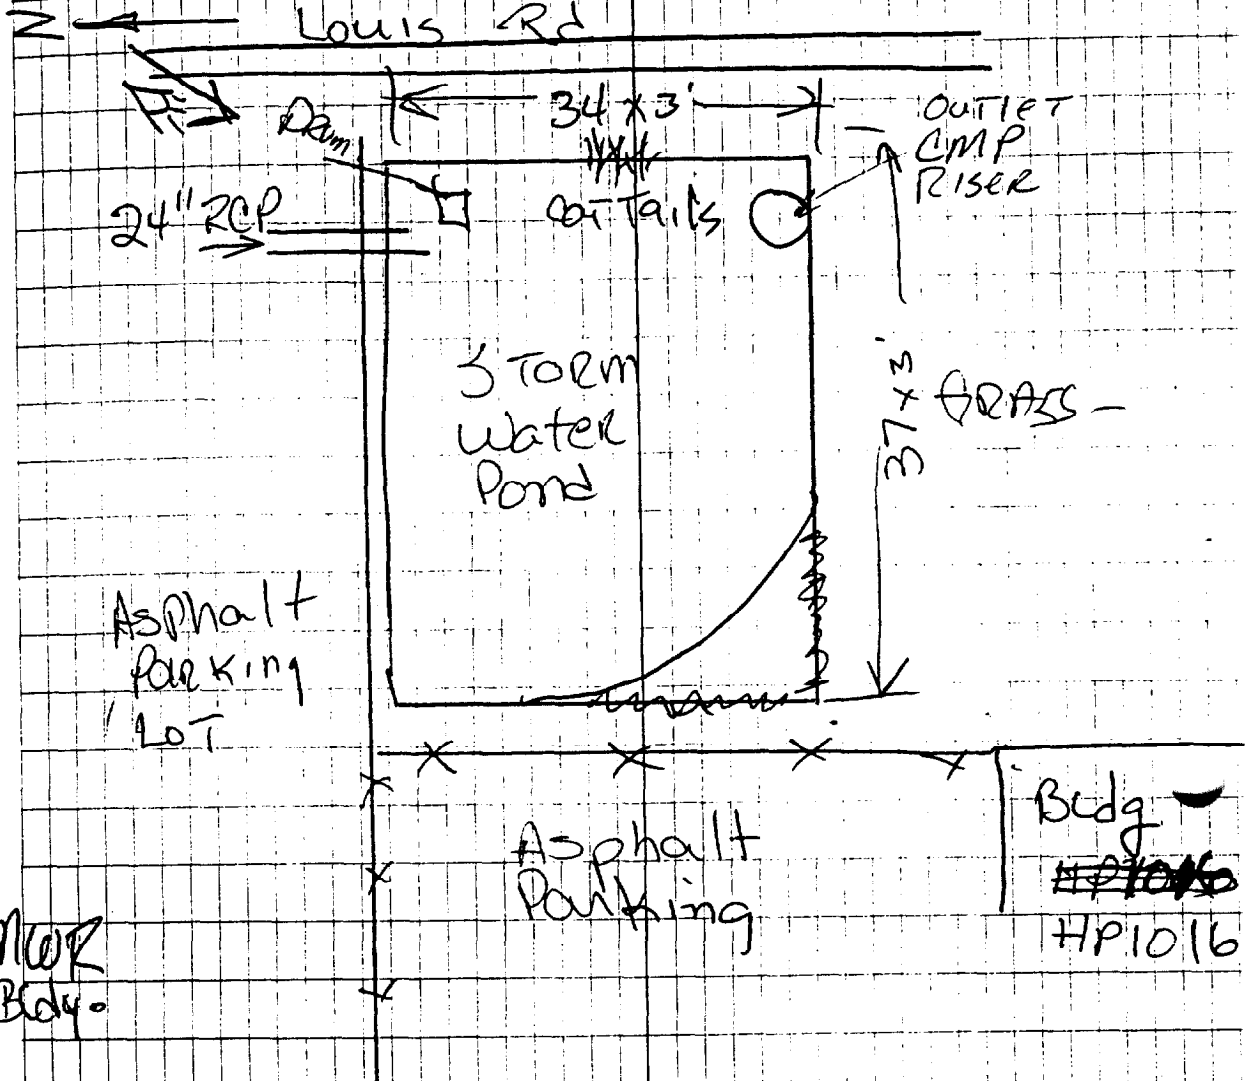 N
Louis Rd
34 x 3'
Dam
OUTLET
CMP
RISER
24" RCP
CatTails
STORM
Water
Pond
37 x 3'
GRASS
Asphalt
Parking
LOT
Asphalt
Parking
Bldg
HP1016
MWR
Bldg.